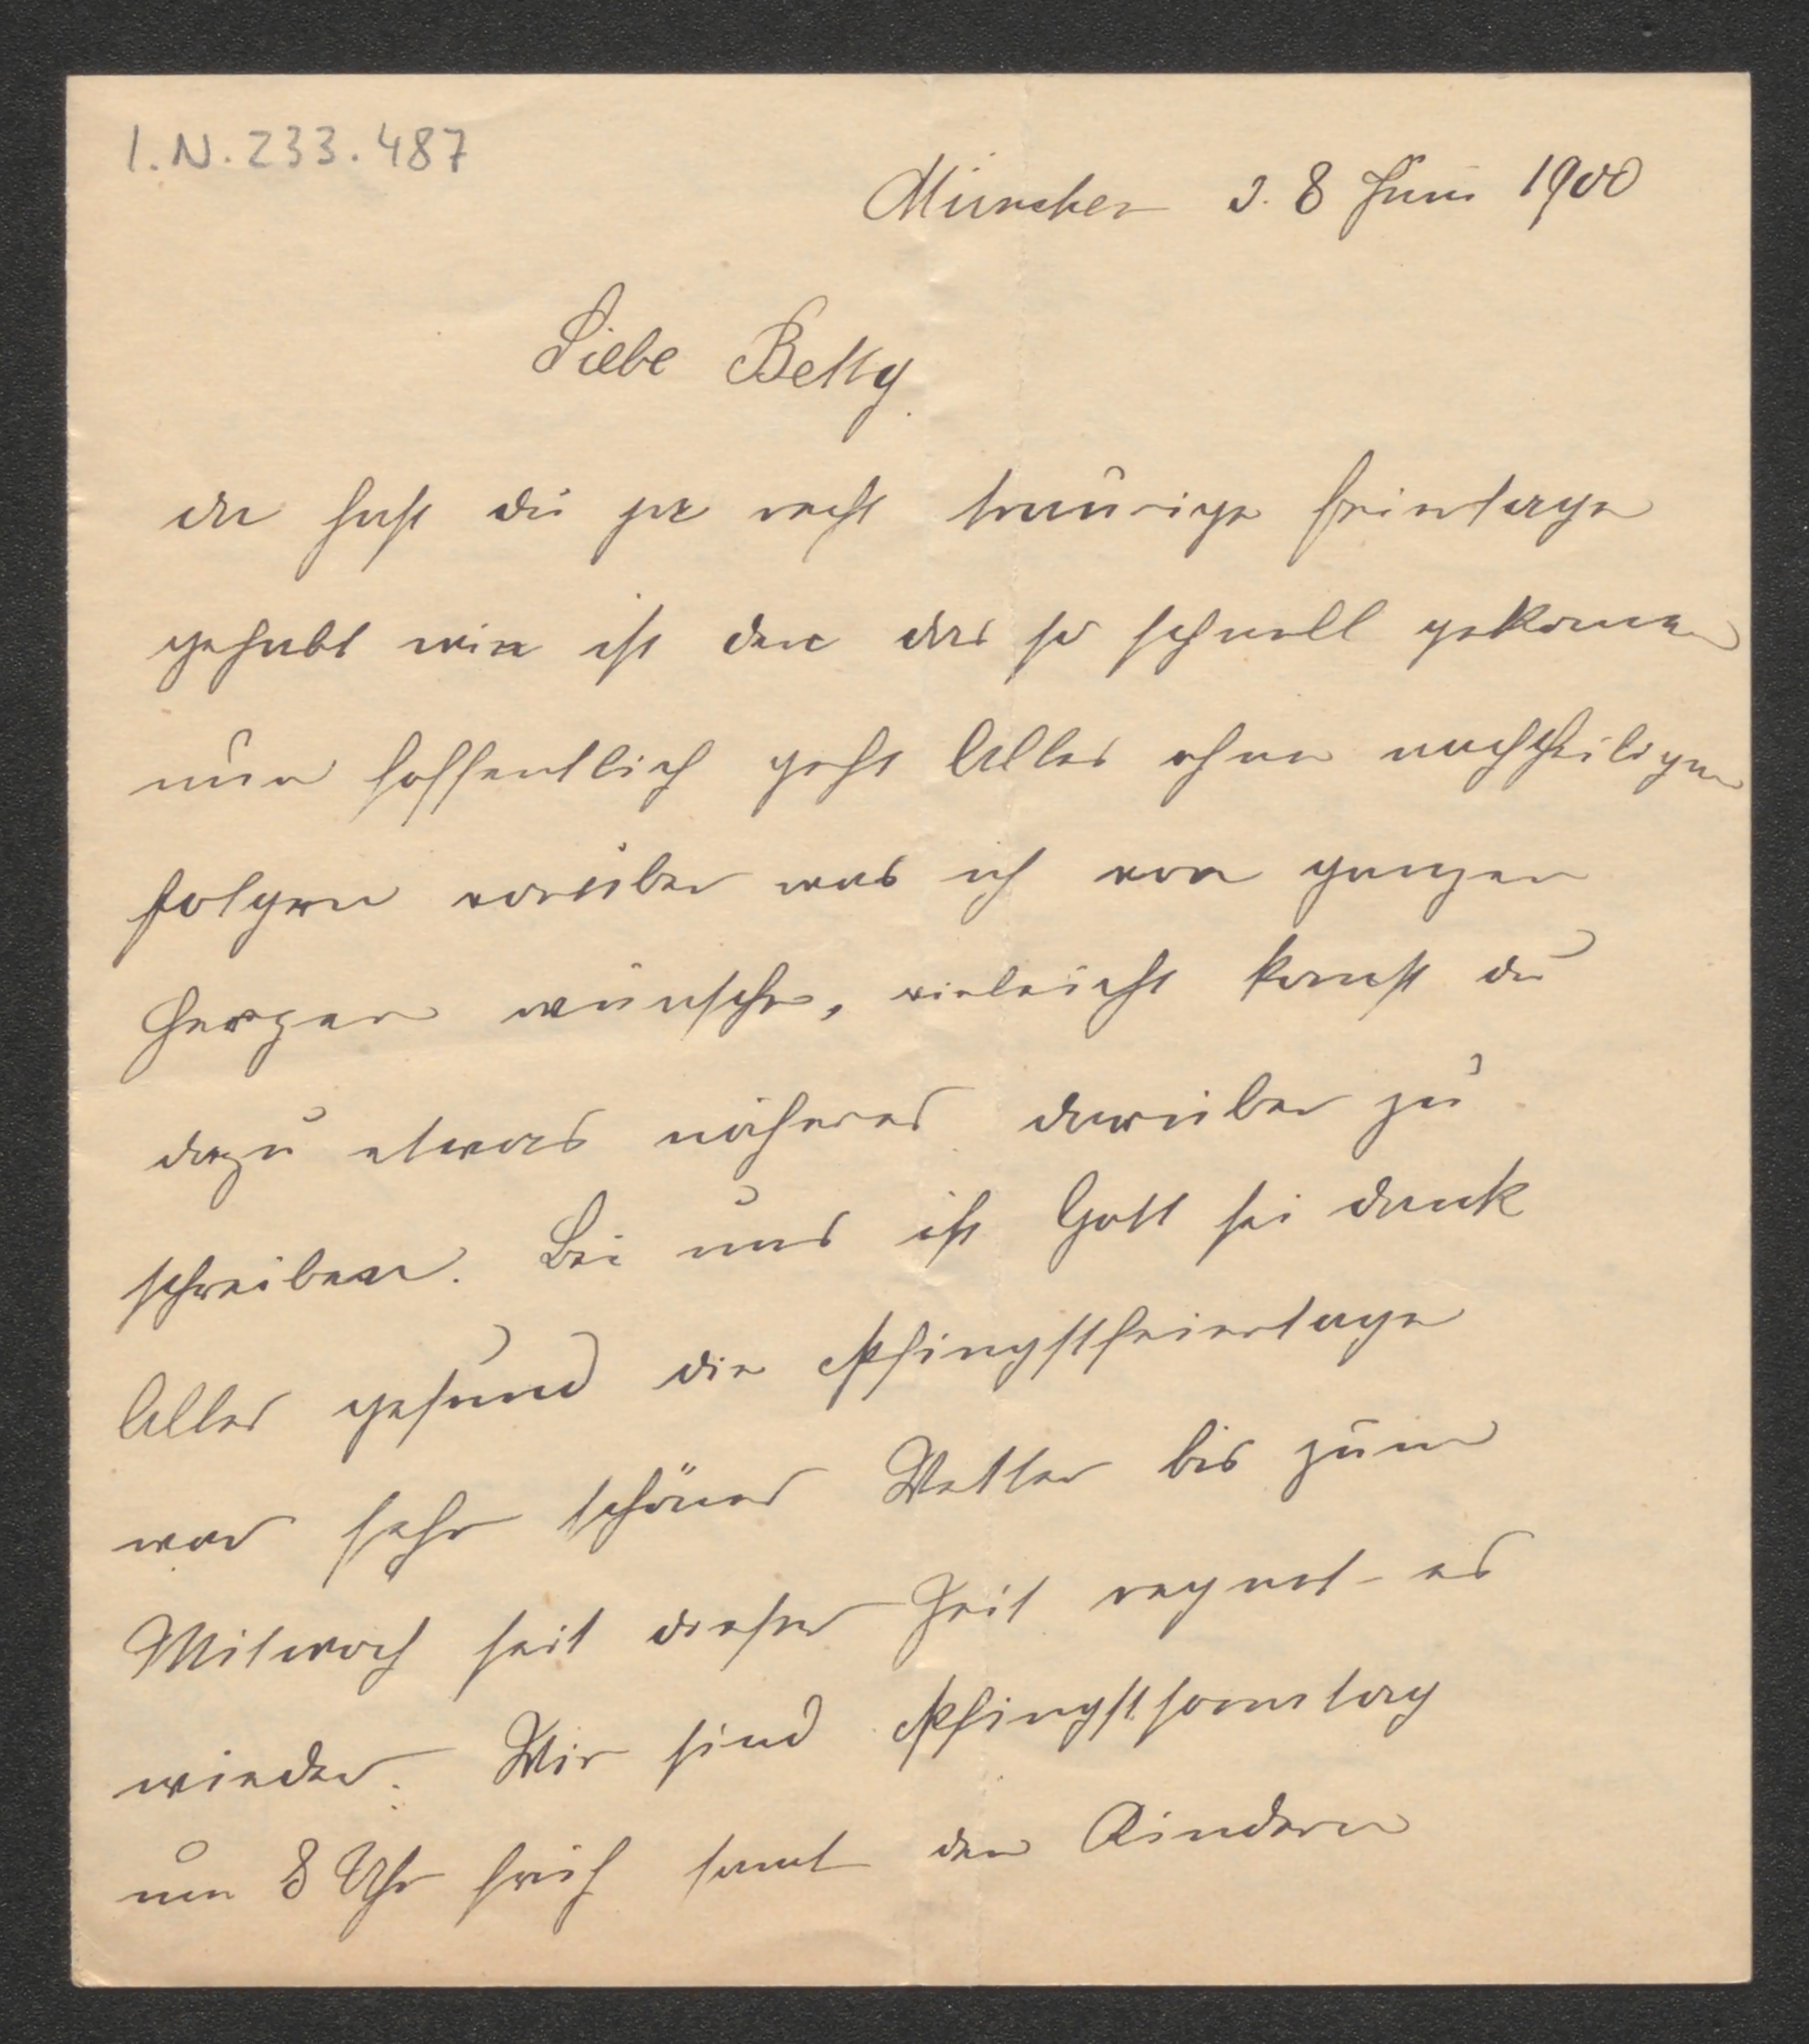 I.N. 233.487
München d. 8 Juni 1900
Liebe Betty
da hast du ja recht traurige feiertage
gehabt wie ist den das so schnell gekomen
nun hoffentlich geht Alles ohne nachtheiligen
folgen vorüber was ich von ganzen
Herzen wünsche, vieleicht komst du
dazu etwas näheres darüber zu
schreiben. Bei uns ist Gott sei dank
Alles gesund die Pfingstfeiertage
war sehr schönes Wetter bis zum
Mitwoch seit dieser Zeit regnet es
wieder. Wir sind Pfingstsonntag
um 8 Uhr früh samt den Kindern